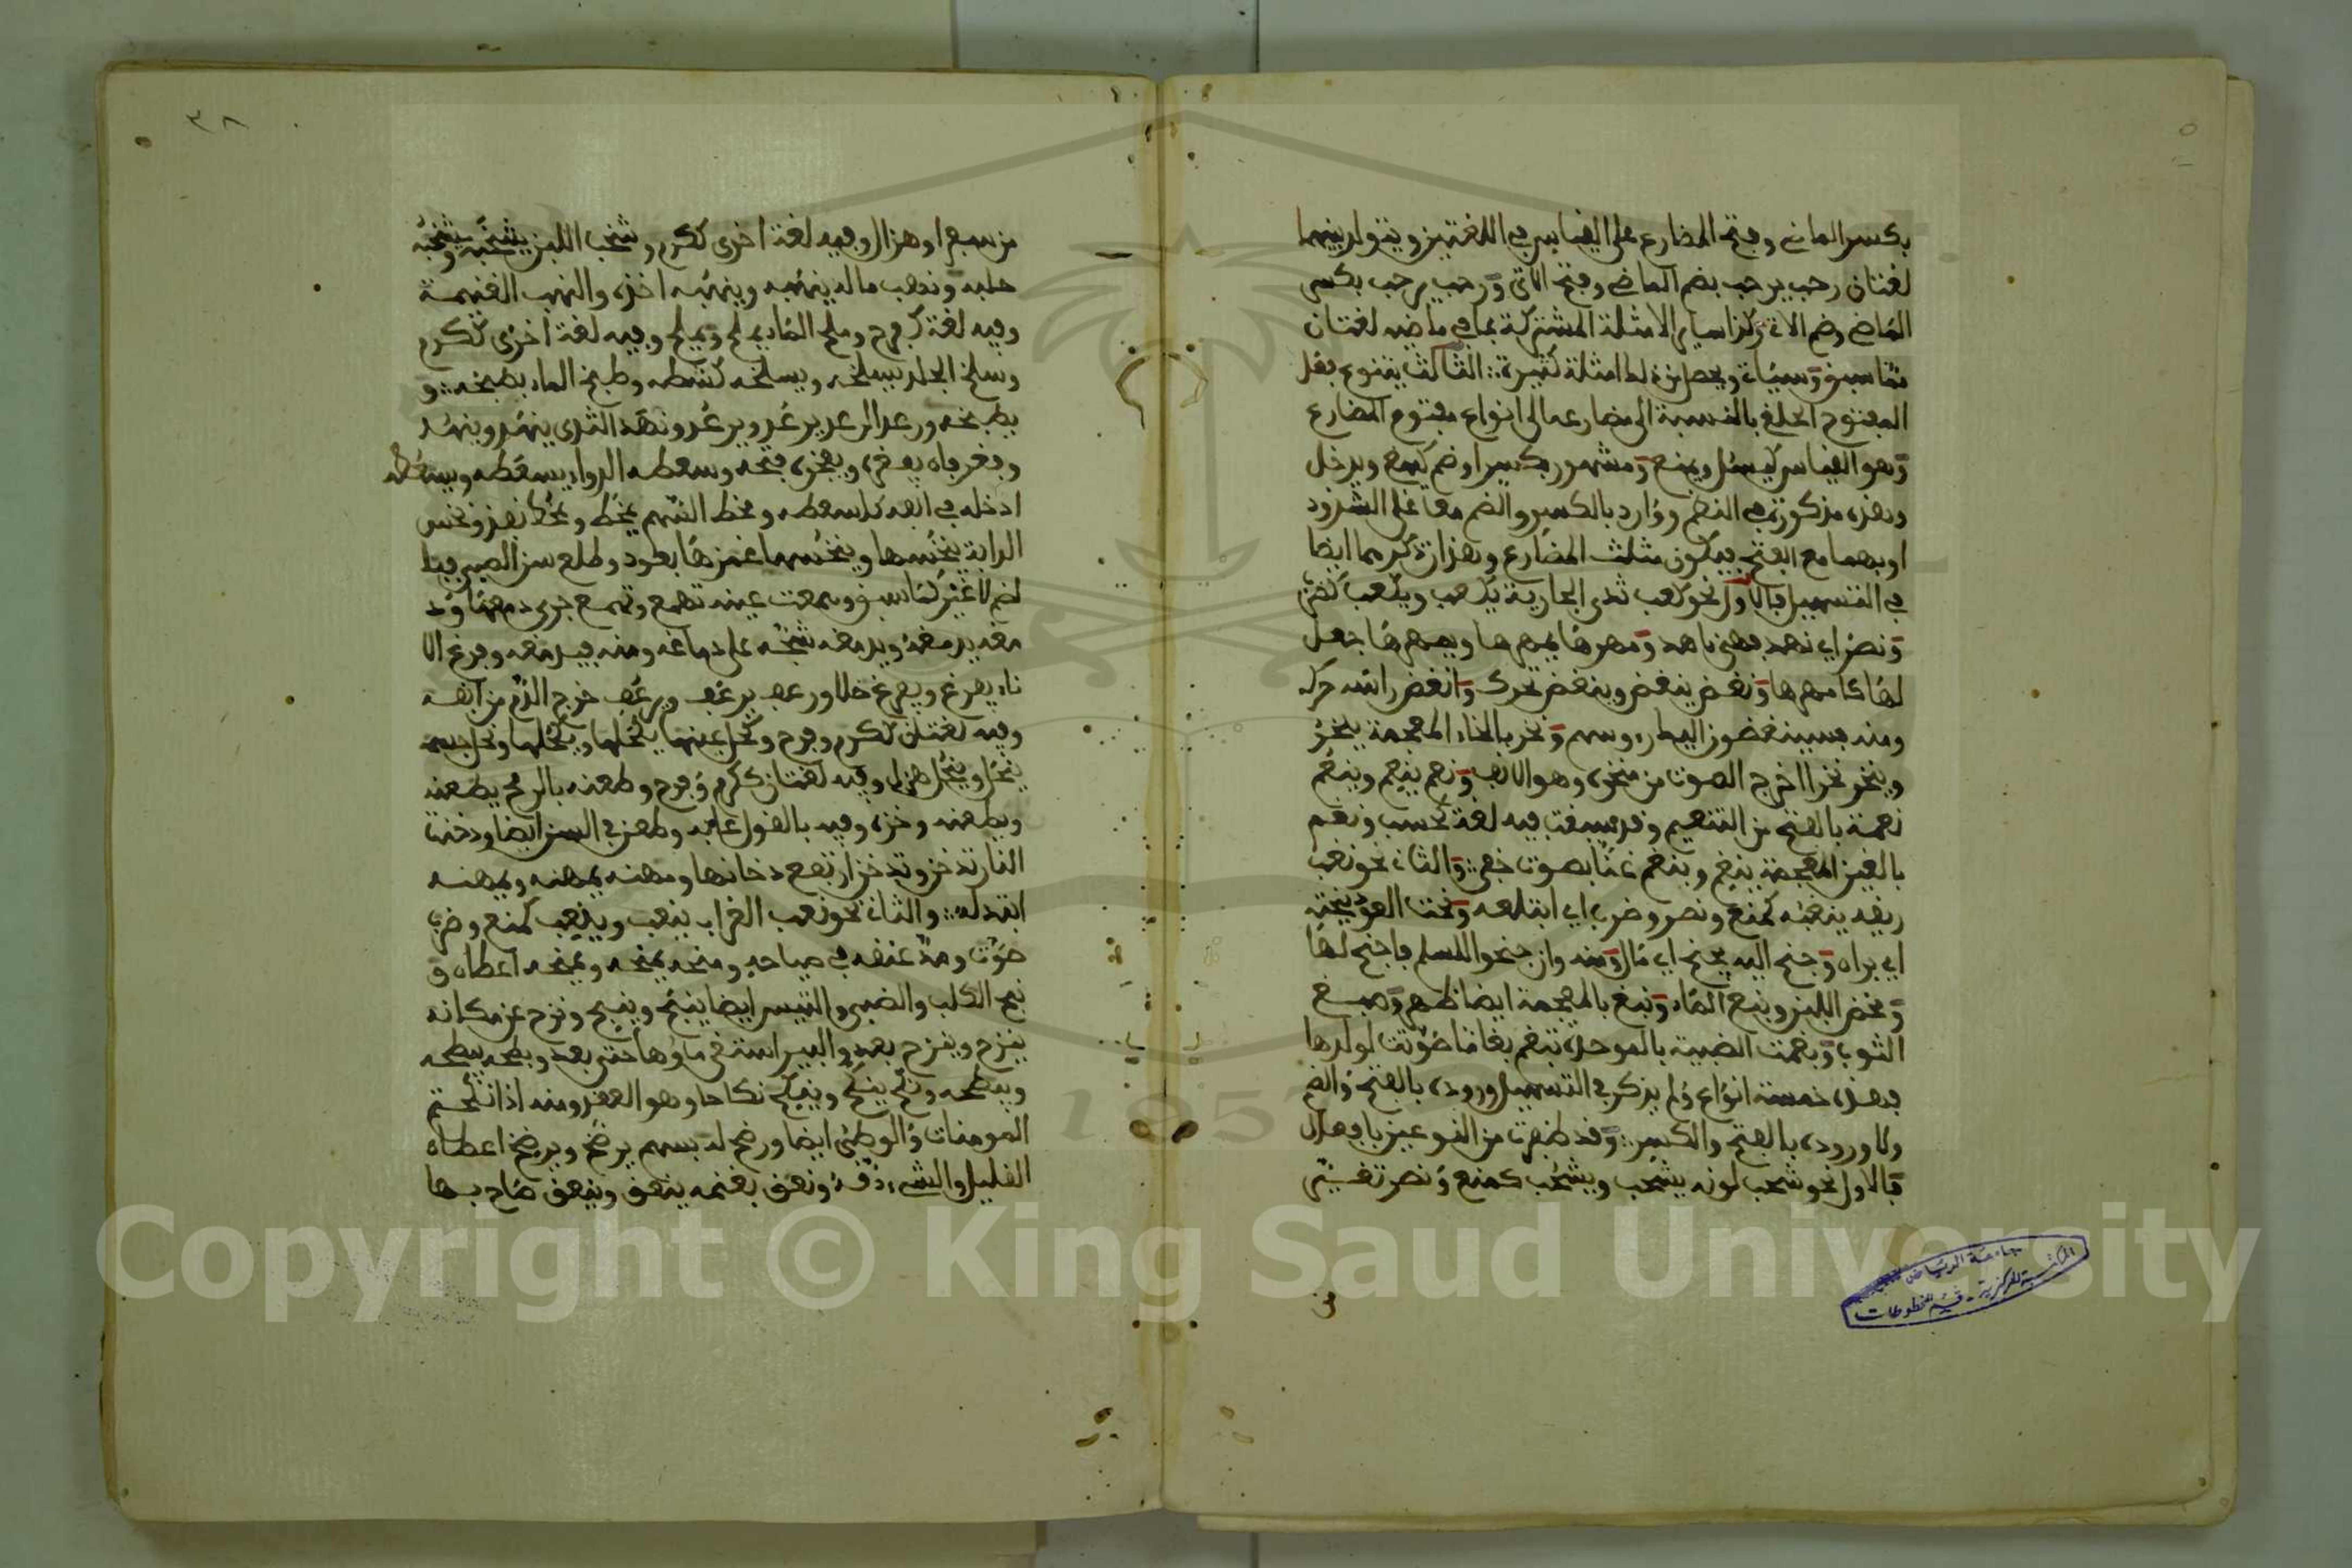 بكسر الماضي وفتح المضارع على القياس في اللغتين ويتولد بينهما
لغتان رحب يرحب بضم الماضي وفتح الاتي ورحب يرحب بكسر
الماضي وضم الاتي وكذا ساير الامثلة المشتركة بما في ماضيه لغتان
المفتوح الحلقي بالنسبة الى مضارعه الى انواع مفتوح المضارع
وهو القياس كيسئل ويمنع ومشهور بكسر او ضم كيبغ ويدخل
وهذه مذكورة في النظم ووارد بالكسر والضم معا على الشذوذ
او بهما مع الفتح فيكون مثلث المضارع وهذان ذكرهما ايضا
في التسهيل فالاول نحو كعب ثدي الجارية يكعب ويكعب كضرب
ونصر اي نهد فهي ناهد ومهرها يمهرها ويمهرها جعل
لها كامهرها ونغض ينغض وينغض تحرك وانغض راسه حركه
ومنه فسينغضون اليك رءوسهم ونخر بالخاء المعجمة ينخر
وينخر نخرا اخرج الصوت من منخره وهو الانف ونعم ينعم وينعم
نعمة بالفتح من التنعيم وقد سبقت فيه لغة كحسب ونغم
بالغين المعجمة ينغم وينغم غنا بصوت خفي والثاني نحو نغب
ريقه ينغبه كمنع ونصر وضرب اي ابتلعه ونحت العود ينحته
اي براه وجنح اليه يجنح اي مال ومنه وان جنحوا للسلم فاجنح لها
ومخض اللبن ونبع الماء ونبغ بالمعجمة ايضا ظهر وصبغ
الثوب وبغمت الضبية بالموحدة تبغم بغاما صوتت لولدها
فهذه خمسة انواع ولم يذكر في التسهيل وروده بالفتح والضم
ولا وروده بالفتح والكسر وقد ظفرت من النوعين بافعال
فالاول نحو شحب لونه يشحب ويشحب كمنع ونصر تغير
من سفر او هزال وفيه لغة اخرى ككرم وشخب اللبن يشخبه ويشخبه
حلبه ونهب ماله ينهبه وينهبه اخذه والنهب الغنيمة
وفيه لغة كفرح وملح الماء يملح ويملح وفيه لغة اخرى ككرم
وسلخ الجلد يسلخه ويسلخه كشطه وطبخ الماء يطبخه و
يطبخه ورعد الرعد يرعد ويرعد ونهد الثدي ينهد وينهد
وفغر فاه يفغره ويفغره فتحه وسعطه الدواء يسعطه ويسعطه
ادخله في انفه كاسعطه ومخط السهم يمخط ويمخط نفذ ونخس
الدابة ينخسها وينخسها غمزها بعود وطلع سن الصبي فيها
لضم لا غير كما سبق ودمعت عينه تدمع وتدمع جرى دمعها ود
مغه يدمغه ويدمغه شجه على دماغه ومنه فيدمغه وفرغ الا
ناء يفرغ ويفرغ خلا ورعف يرعف ويرعف خرج الدم من انفه
وفيه لغتان ككرم وفرح وكحل عينها يكحلها ويكحلها ونحل جسمه
ينحل وينحل هزل وفيه لغتان ككرم وفرح وطعنه بالرمح يطعنه
ويطعنه وخزه وفيه بالقول عابه وطعن في السن ايضا ودخنت
النار تدخن وتدخن ارتفع دخانها ومهنه يمهنه ويمهنه
ابتذله والثاني نحو نعب الغراب ينعب وينعب كمنع وضرب
صوت ومد عنقه في صياحه ومنحه يمنحه ويمنحه اعطاه و
نبح الكلب والضبي والتيس ايضا ينبح وينبح ونزح عن مكانه
ينزح وينزح بعد والبير استقى ماؤها حتى بعد وبطحه يبطحه
ويبطحه ونكح ينكح وينكح نكاحا وهو العقد ومنه اذا نكحتم
المومنات والوطئ ايضا ورضخ له بسهم يرضخ ويرضخ اعطاه
القليل والشيء دقه ونعق بغنمه ينعق وينعق صاح بها
٣٨
جامعة الرياض
المكتبة المركزية - قسم المخطوطات
Copyright © King Saud University
1957